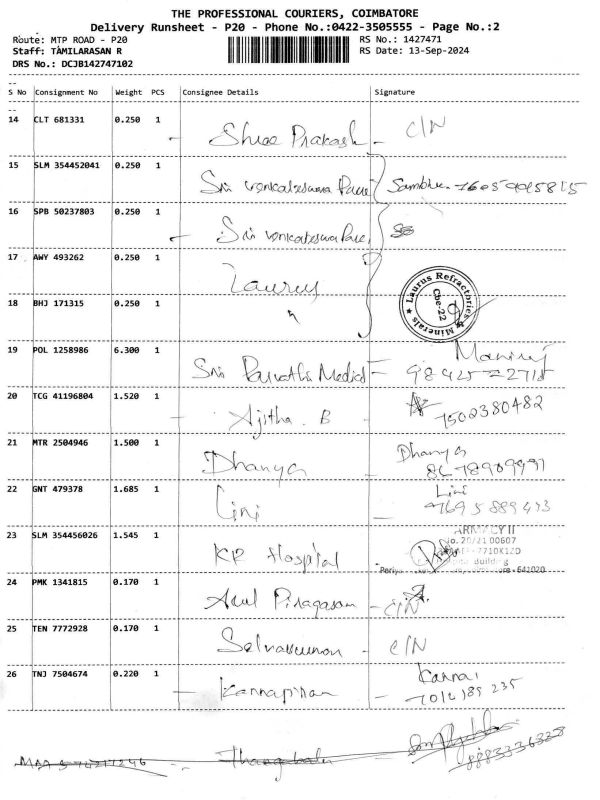 THE PROFESSIONAL COURIERS, COIMBATORE
Delivery Runsheet - P20 - Phone No.:0422-3505555 - Page No.:2
Route: MTP ROAD - P20 RS No.: 1427471
Staff: TAMILARASAN R RS Date: 13-Sep-2024
DRS No.: DCJB142747102
S No Consignment No Weight PCS Consignee Details Signature
14 CLT 681331 0.250 1
Shree Prakash - C/N
15 SLM 354452041 0.250 1
Sri venkateswara
16 SPB 50237803 0.250 1
Sri venkateswara
17 AWY 493262 0.250 1
Laurus
18 BHJ 171315 0.250 1
Laurus Refractories & Minerals
Cbe-22
19 POL 1258986 6.300 1
Sri Parvathi Medical
20 TCG 41196804 1.520 1
Ajitha. B 7502380482
21 MTR 2504946 1.500 1
Dhanya Dhanya
22 GNT 479378 1.685 1
Lini Lini
23 SLM 354456026 1.545 1
ARMACY II
No. 20/21 00607
KR Hospital
Building
641020
24 PMK 1341815 0.170 1
Arul Piragasam - C/N
25 TEN 7772928 0.170 1
- C/N
26 TNJ 7504674 0.220 1
Kannapiran